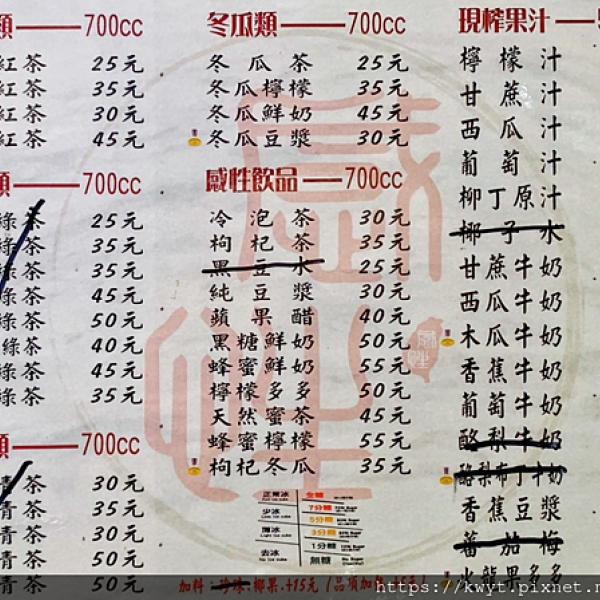 類——700cc
紅茶 25元
紅茶 35元
紅茶 30元
紅茶 45元
類——700cc
綠茶 25元
綠茶 35元
綠茶 35元
綠茶 45元
綠茶 50元
綠茶 40元
綠茶 45元
綠茶 35元
類——700cc
青茶 30元
青茶 35元
青茶 30元
青茶 50元
青茶 50元
冬瓜類——700cc
冬瓜茶 25元
冬瓜檸檬 35元
冬瓜鮮奶 45元
冬瓜豆漿 30元
感性飲品——700cc
冷泡茶 30元
枸杞茶 35元
黑豆水 25元
純豆漿 30元
蘋果醋 40元
黑糖鮮奶 50元
蜂蜜鮮奶 55元
檸檬多多 50元
天然蜜茶 45元
蜂蜜檸檬 55元
枸杞冬瓜 35元
正常冰 全糖
少冰 7分糖
5分糖
薄冰 3分糖
1分糖
去冰 無糖
加料：珍珠.椰果.+15元（品項加料+15元）
現榨果汁——5
檸檬汁
甘蔗汁
西瓜汁
葡萄汁
柳丁原汁
椰子水
甘蔗牛奶
西瓜牛奶
木瓜牛奶
香蕉牛奶
葡萄牛奶
酪梨牛奶
酪梨布丁牛奶
香蕉豆漿
蕃茄梅
火龍果多多
https://kwyt.pixnet.n